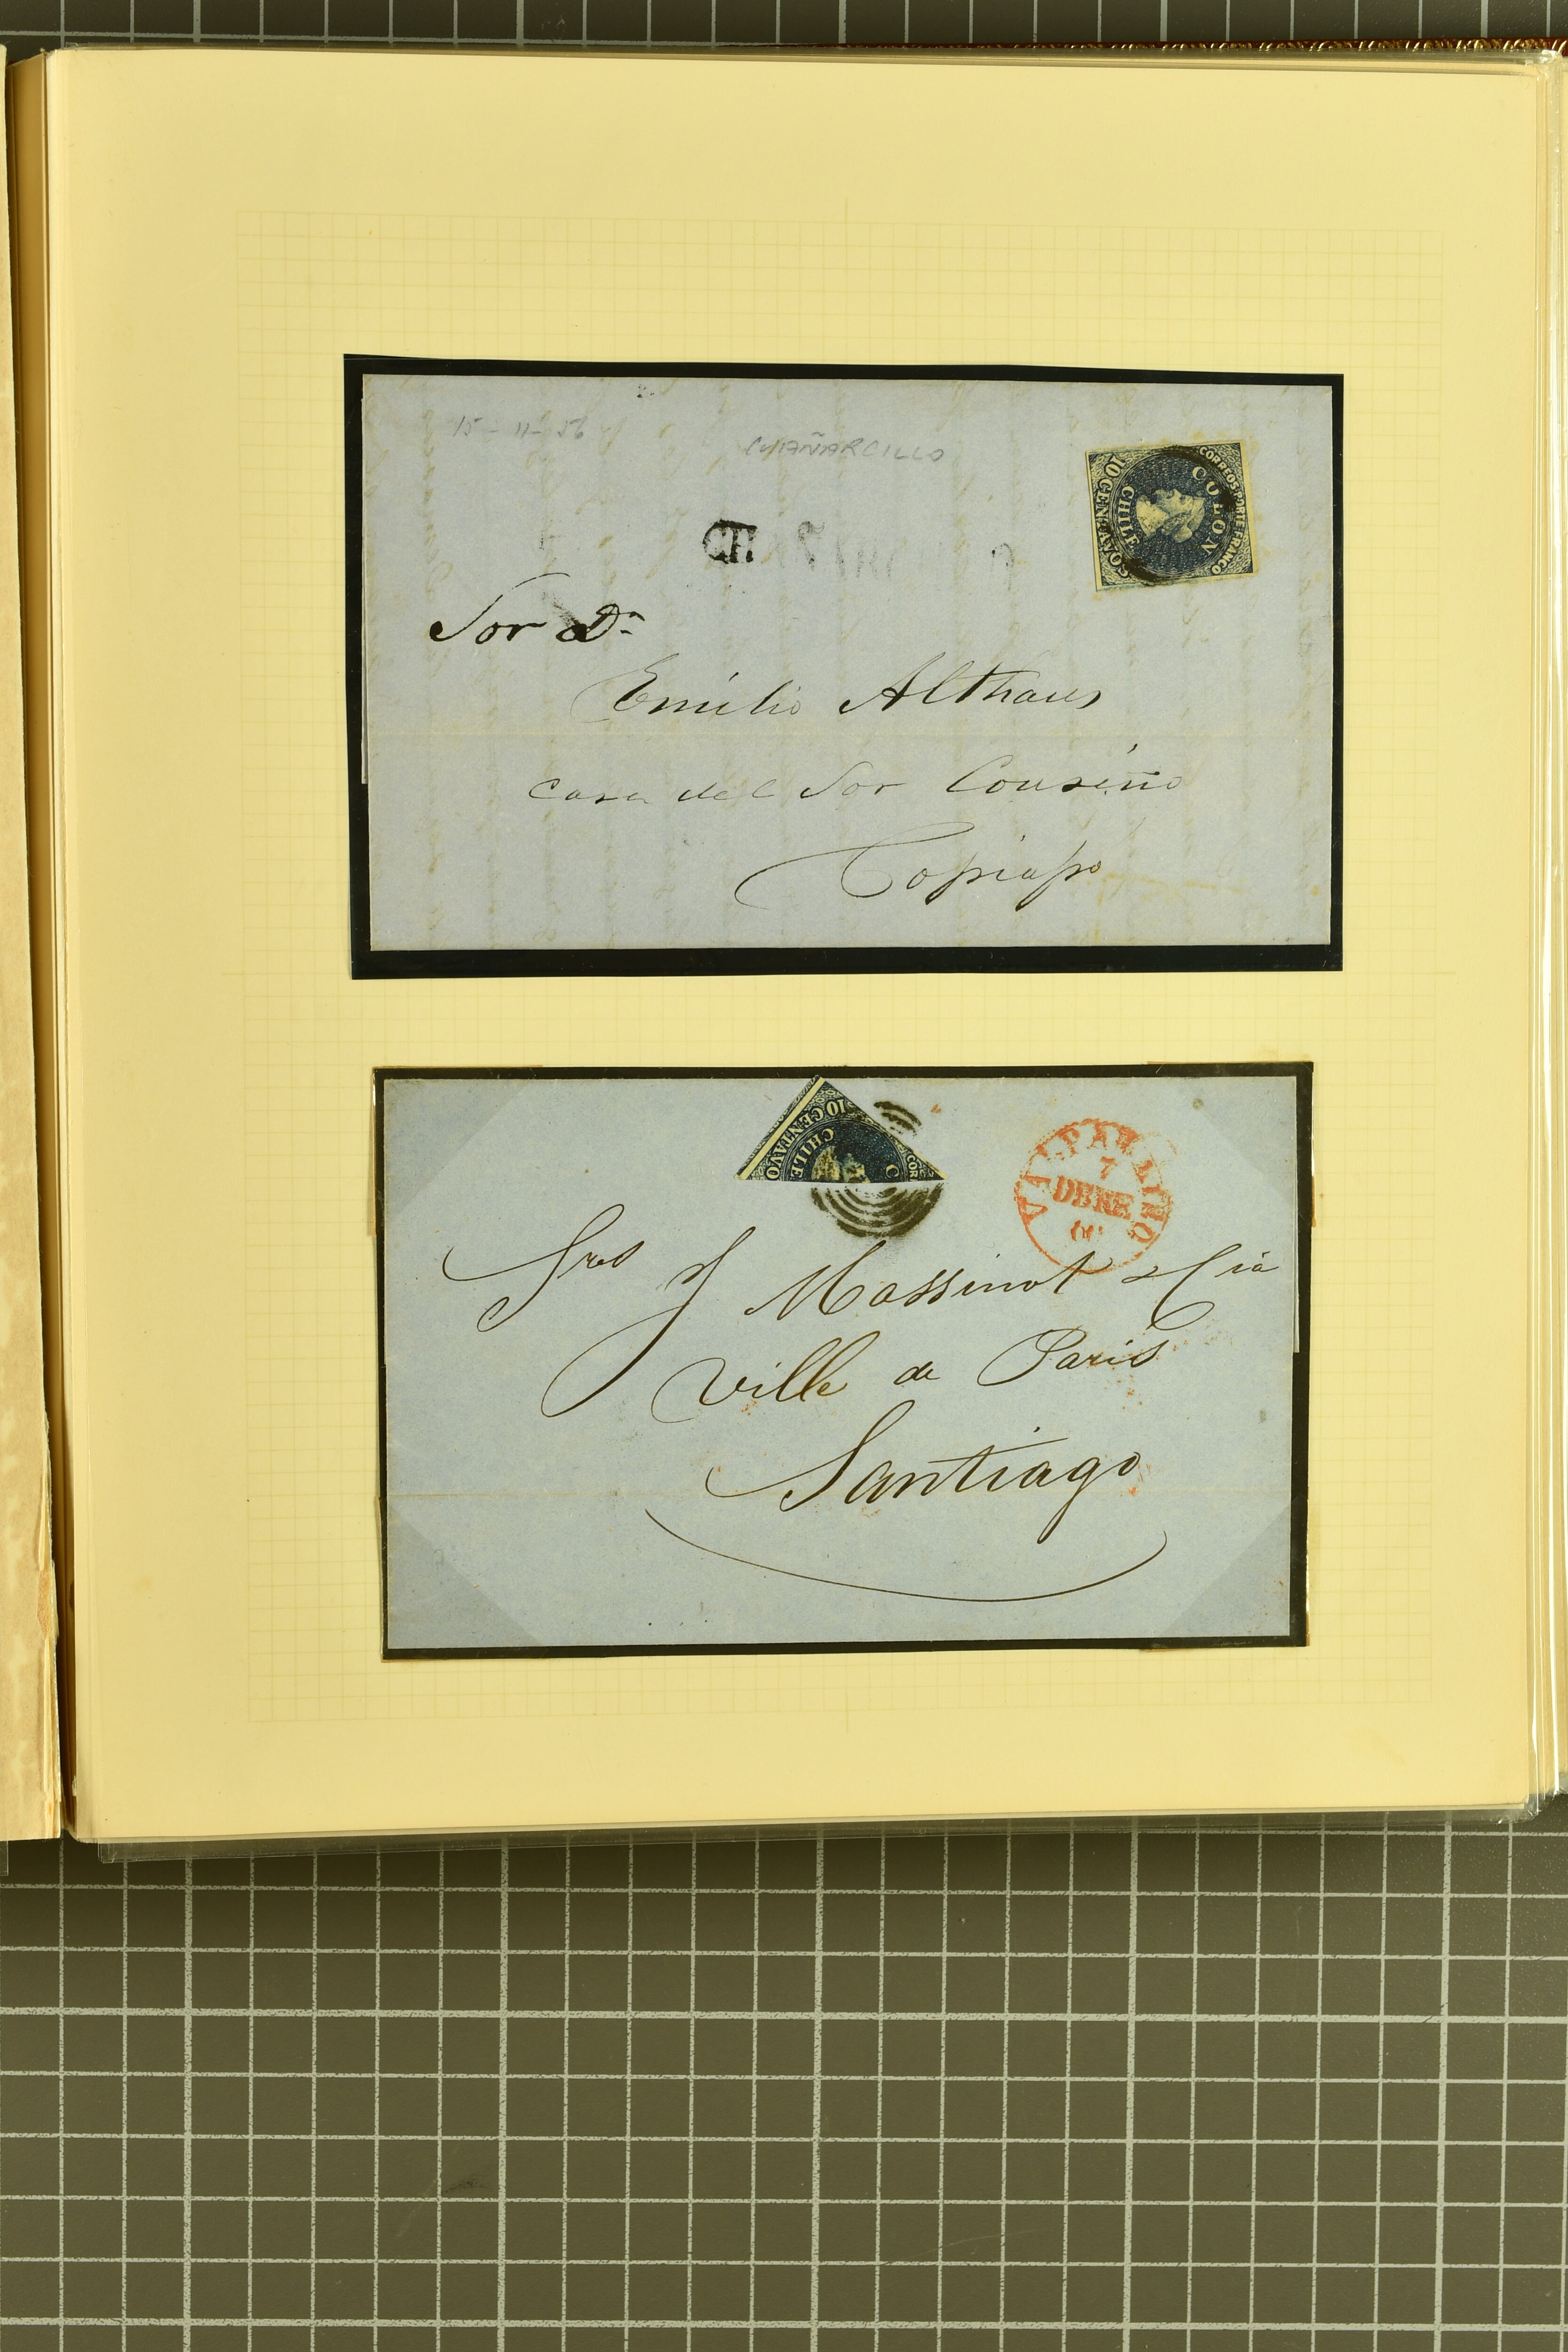 15-11-56
CHAÑARCILLO
CORREOS PORTE FRANCO
COLON
CHILE
10 CENTAVOS
CH
Sor Dn
Emilio Althaus
casa del Sor Cousiño
Copiapo
10 CENTAVO
CHILE
C
COR
VALPARAISO
7
DBRE
Sres J Massinot & Cia
Ville de Paris
Santiago